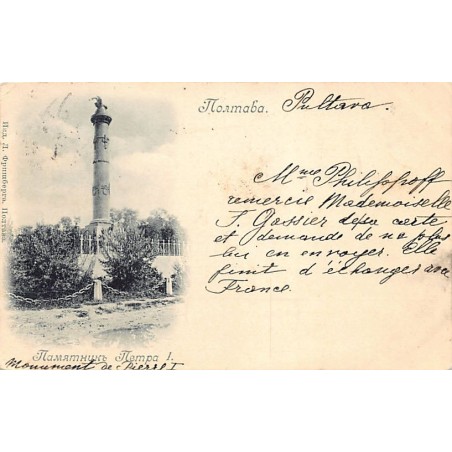 Полтава. Pultava.
Изд. Д. Фришберга, Полтава.
Mme Philippoff
remercie Mademoiselle
T. Gossier carte
et demande de ne plus
lui en envoyer. Elle
finit d'échanges avec
France.
Памятникъ Петра I.
Monument de Pierre I